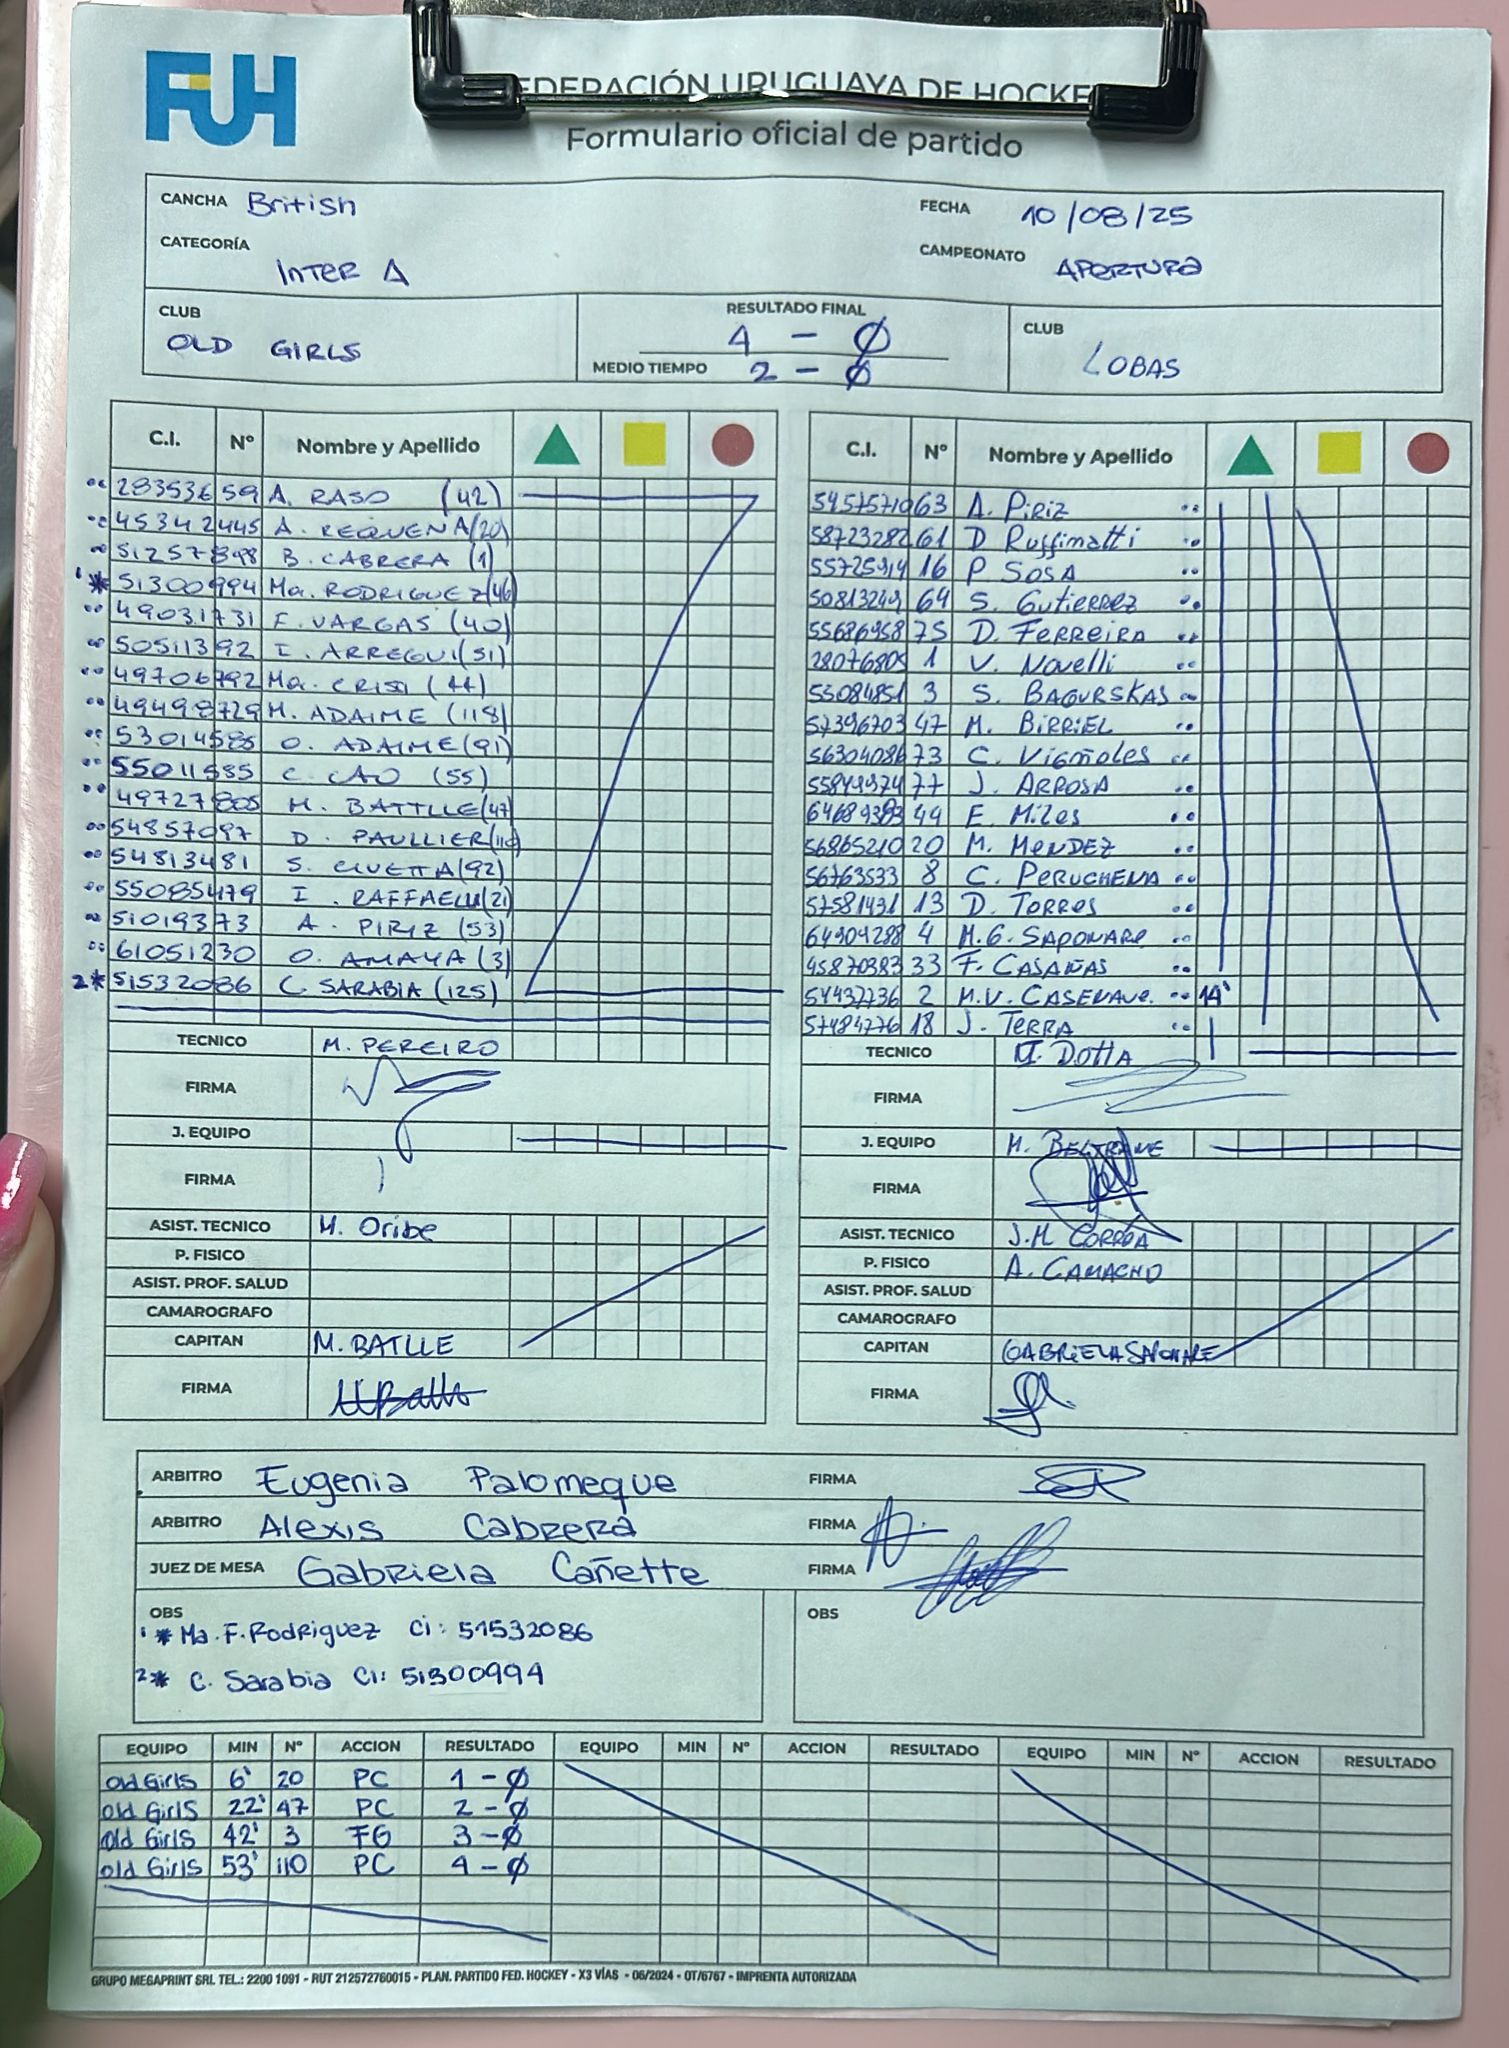 FUH
FEDERACIÓN URUGUAYA DE HOCKEY
Formulario oficial de partido
CANCHA British
FECHA 10/08/25
CATEGORÍA INTER A
CAMPEONATO APERTURA
CLUB OLD GIRLS
RESULTADO FINAL 4 - Ø
MEDIO TIEMPO 2 - Ø
CLUB LOBAS
C.I. Nº Nombre y Apellido
28353659 A. RASO (42)
45342445 A. REQUENA (20)
51257898 B. CABRERA (1)
1* 51300994 Ma. RODRIGUEZ (46)
49031731 F. VARGAS (40)
50511392 I. ARREGUI (51)
49706792 Ma. CRISI (44)
49498729 M. ADAIME (118)
53014585 O. ADAIME (91)
55011585 C. CAO (55)
49727805 M. BATTLLE (47)
54857097 D. PAULLIER (110)
54813481 S. CIVETTA (92)
55085479 I. RAFFAELLI (21)
51019373 A. PIRIZ (53)
61051230 O. AMAYA (3)
2* 51532086 C. SARABIA (125)
TECNICO M. PEREIRO
FIRMA
J. EQUIPO
FIRMA
ASIST. TECNICO M. Oribe
P. FISICO
ASIST. PROF. SALUD
CAMAROGRAFO
CAPITAN M. BATLLE
FIRMA
C.I. Nº Nombre y Apellido
54575710 63 A. PiRiZ
58723282 61 D Ruffimatti
55725914 16 P SOSA
50813249 64 S. Gutierrez
55686958 75 D. FERREIRA
28076805 1 V. Novelli
55084851 3 S. BAGURSKAS
57396703 47 M. BiRRiEL
56304086 73 C. Vigñoles
55849974 77 J. ARROSA
64689383 44 E. Miles
56865210 20 M. MENDEZ
56763533 8 C. PERUCHENA
57581431 13 D. TORRES
64909288 4 M.G. SAPONARE
45870383 33 F. CASAÑAS
54437736 2 M.V. CASENAVE. 14'
57484776 18 J. TERRA
TECNICO DOTTA
FIRMA
J. EQUIPO M. BELTRAME
FIRMA
ASIST. TECNICO J.M CORREA
P. FISICO A. CAMACHO
ASIST. PROF. SALUD
CAMAROGRAFO
CAPITAN GABRIELA SAPONARE
FIRMA
ARBITRO Eugenia Palomeque FIRMA
ARBITRO Alexis Cabrera FIRMA
JUEZ DE MESA Gabriela Cañette FIRMA
OBS
1* Ma. F. Rodriguez Ci: 51532086
2* C. Sarabia Ci: 51300994
OBS
EQUIPO MIN Nº ACCION RESULTADO EQUIPO MIN Nº ACCION RESULTADO EQUIPO MIN Nº ACCION RESULTADO
Old Girls 6' 20 PC 1 - Ø
Old Girls 22' 47 PC 2 - Ø
Old Girls 42' 3 FG 3 - Ø
Old Girls 53' 110 PC 4 - Ø
GRUPO MEGAPRINT SRL TEL.: 2200 1091 - RUT 212572760015 - PLAN. PARTIDO FED. HOCKEY - X3 VÍAS - 06/2024 - OT/6767 - IMPRENTA AUTORIZADA